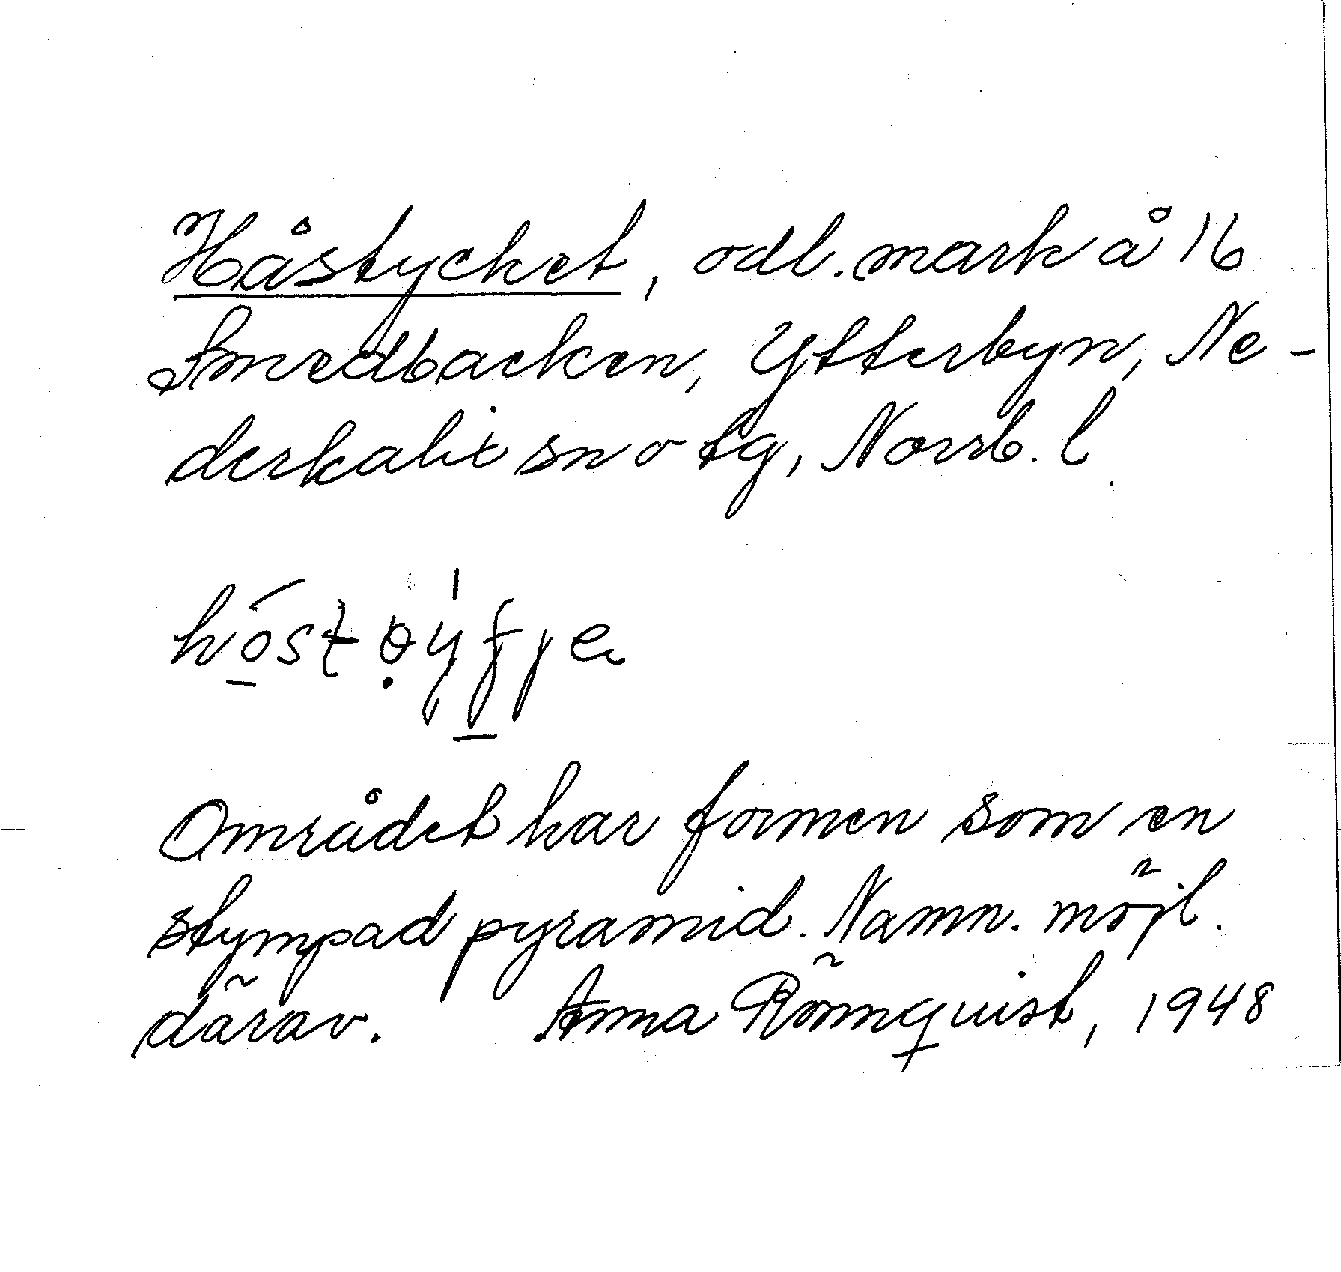 Håstycket, odl. mark å 16
Smedbacken, Ytterbyn, Ne-
derkalix sn o tg, Norrb. l
Området har formen som en
stympad pyramid. Namn. möjl.
därav. Anna Rönnquist, 1948